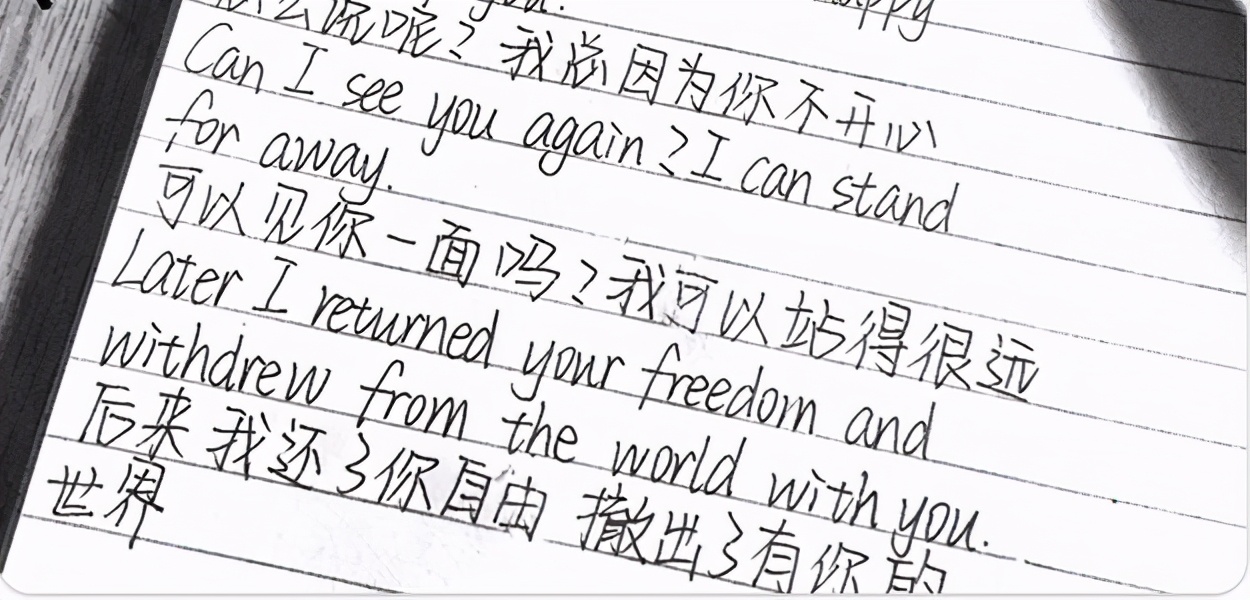 you.
怎么说呢？我总因为你不开心
Can I see you again? I can stand
for away.
可以见你一面吗？我可以站得很远
Later I returned your freedom and
withdrew from the world with you.
后来我还了你自由 撤出了有你的
世界